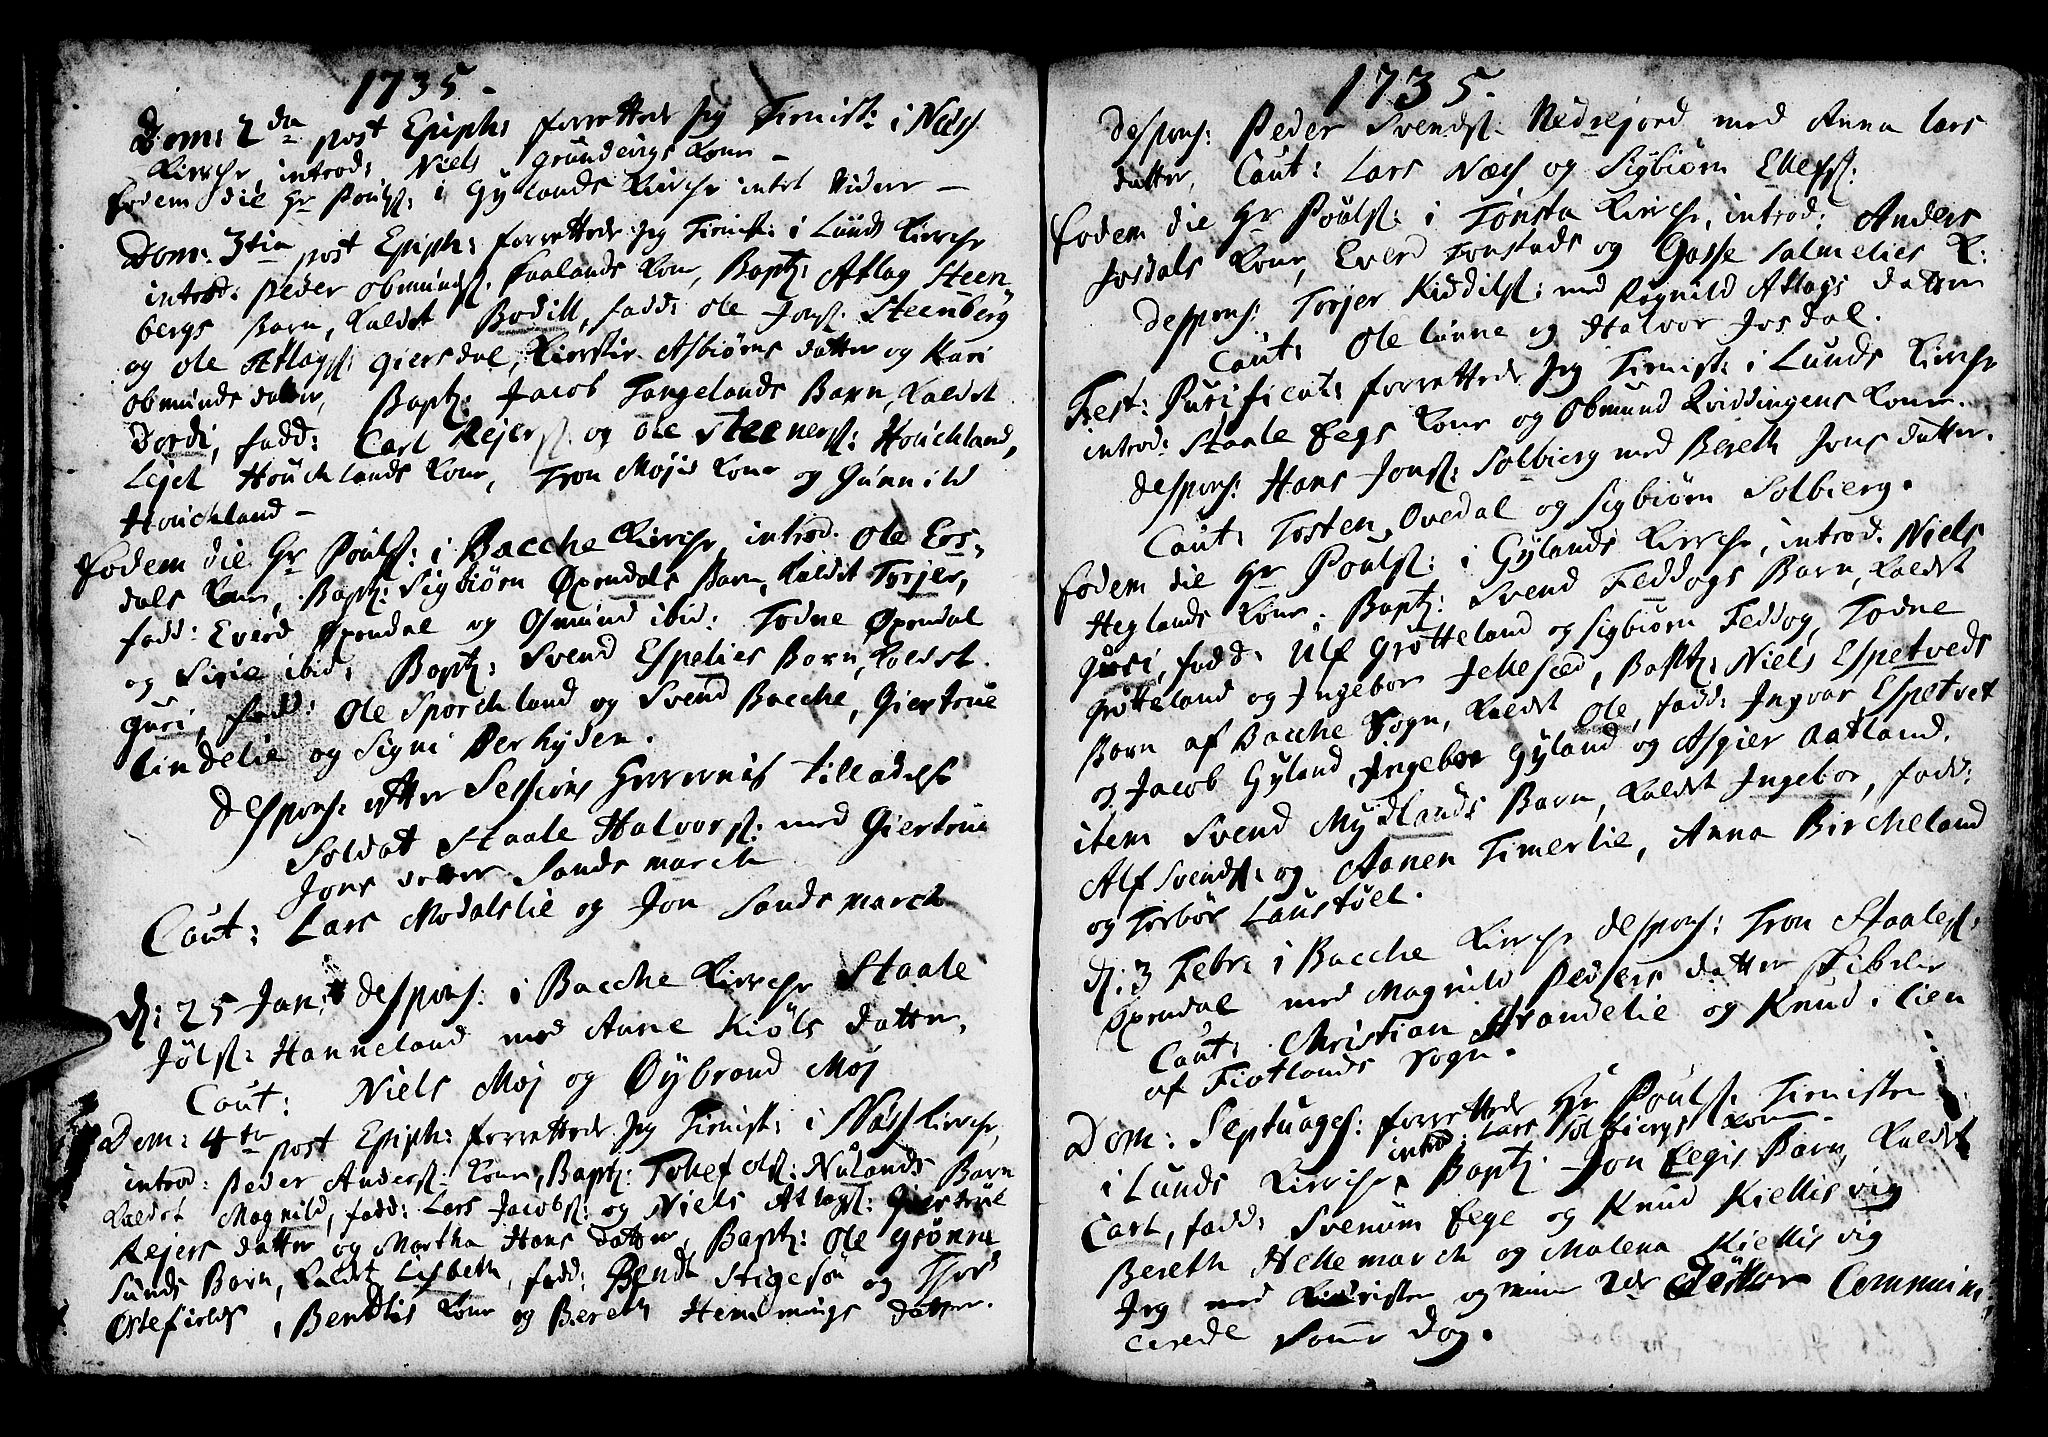 1735.
Dom: 2da post Epiph: forrettede Jeg Tienist: i Næss
Kirche, introd: Niels Grundevigs Kone –
Eodem die Hr Poulss: i Gylands Kirche intet Videre –
Dom: 3tia post Epiph: forrettede Jeg Tienist: i Lunds Kirche
introd: Peder Obmundss. Faalands Kone, Bapt: Atlag Steen
bergs Barn, Kaldet Bodill, fadd: Ole Jonss: Steenberg
og Ole Atlagss: Giersdal, Kirstie Asbiørns datter og Kari
Obmunds datter, Bapt: Jacob Tangelands Barn, Kaldet
Dordi, fadd: Carl Rejerss: og Ole Steeners: Houchland,
Lejel Houchlands Kone, Tron Mojis Kone og Gunnild
Houchland –
Eodem die Hr Poulss: i Bacche Kirche, introd. Ole Ers-
dals Kone, Bapt: Sigbiørn Øxendals Barn, Kaldet Torjer,
fadd: Everd Øxendal og Osmund ibid: Todne Øxendal
og Sirie ibid: Bapt: Svend Espelies Barn, Kaldet
Guri, fadd: Ole Sporchland og Svend Bacche, Giertrue
Lindelie og Signi Berhyden.
Despons: efter Sessions Herrernis Tilladelse
Soldat Staale Halvorss: med Giertrue
Jons datter Sandsmarch
Caut: Lars Modalslie og Jon Sandsmarch
d: 25 Jan: despons: i Bacche Kirche Staale
Jølss: Hanneland med Anne Kiöls datter,
Caut: Niels Moj og Öybrand Moj
Dom: 4ta post Epiph: forrettede Jeg Tienist: i Næss Kirche,
introd: Peder Anderss: Kone, Bapt: Tollef Olss: Nulands Barn
Kaldet Magnild, fadd: Lars Jacobss: og Niels Atlags: Giertrue
Rejers datter og Martha Hans datter, Bapt: Ole Grønne
sunds Barn, Kaldet Lisbeth, fadd: Bendt Stigesön og Tjerd
Ostefields, Bendtis Kone og Bereth Hemmings datter.
1735.
Despons: Peder Svendss: Nedrejord med Anna Lars
datter, Caut: Lars Næss og Sigbiørn Ellefss:
Eodem die Hr Poulss: i Tonsta Kirche, introd: Anders
Josdals Kone, Everd Tonstads og Gosse Salmelies K:
Despons: Torjer Kiddilss: med Rognild Atlags datter
Caut: Ole Lunne og Halvor Josdal.
Fest: Purificat: forrettede Jeg Tienist: i Lunds Kirche
introd: Staale Eegs Kone og Obmund Kviddingens Kone.
Despons: Hans Jonss: Solbierg med Bereth Jons datter.
Caut: Tosten Ovedal og Sigbiørn Solbierg.
Eodem die Hr Poulss: i Gylands Kirche, introd. Niels
Heglands Kone, Bapt: Svend Feddogs Barn, Kaldet
Guri, fadd: Ulf Grötteland og Sigbiørn Feddog, Todne
Grötteland og Ingebor Jellesæd, Bapt: Niels Espetveds
Born af Bacche Sogn, Kaldet Ole, fadd: Ingvar Espetvet
og Jacob Gyland, Ingebor Gyland og Asgier Aatland.
item Svend Mydlands Barn, Kaldet Ingebor, fadd:
Alf Svendss: og Aanen Timerlie, Anna Bircheland
og Torbor Laustöel.
d: 3 Febr: i Bacche Kirche despons: Tron Staaless:
Øxendal med Magnild Peders datter Fibelie
Caut: Christian Strandelie og Knud Lien
af Fiotlands Sogn.
Dom: Septuages: forrettede Hr Poulss: Tienisten
introd: Lars Solbiergs Kone
i Lunds Kirche, Bapt: Jon Eegis Barn, Kaldet
Carl, fadd: Svenum Eege og Knud Kiellisvig
Bereth Hellemarch og Malena Kiellisvig
Jeg med og mine 2de Communi-
cerede Samme Dag.